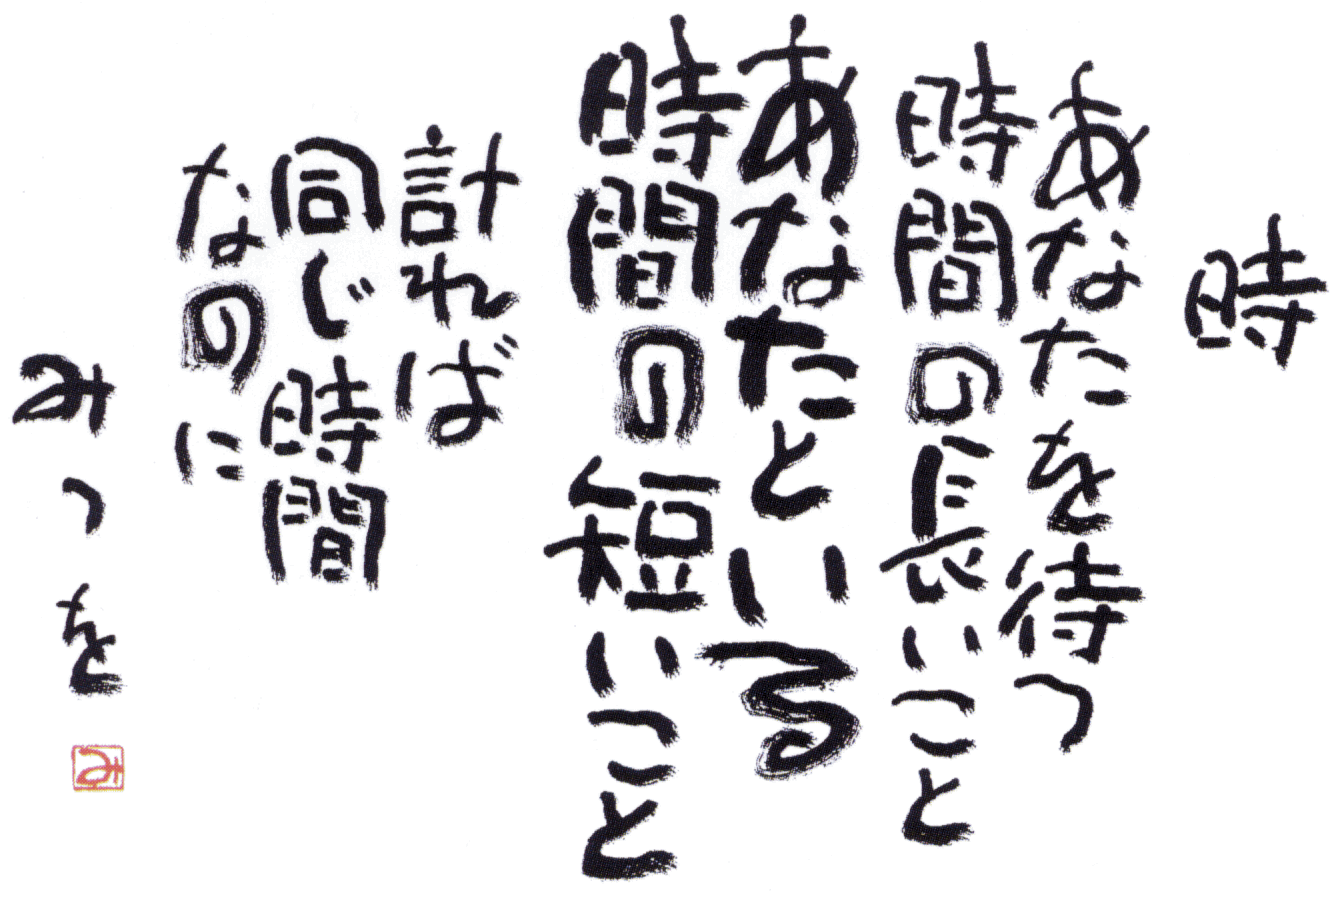 時
あなたを待つ
時間の長いこと
あなたといる
時間の短いこと
計れば
同じ時間
なのに
みつを
み